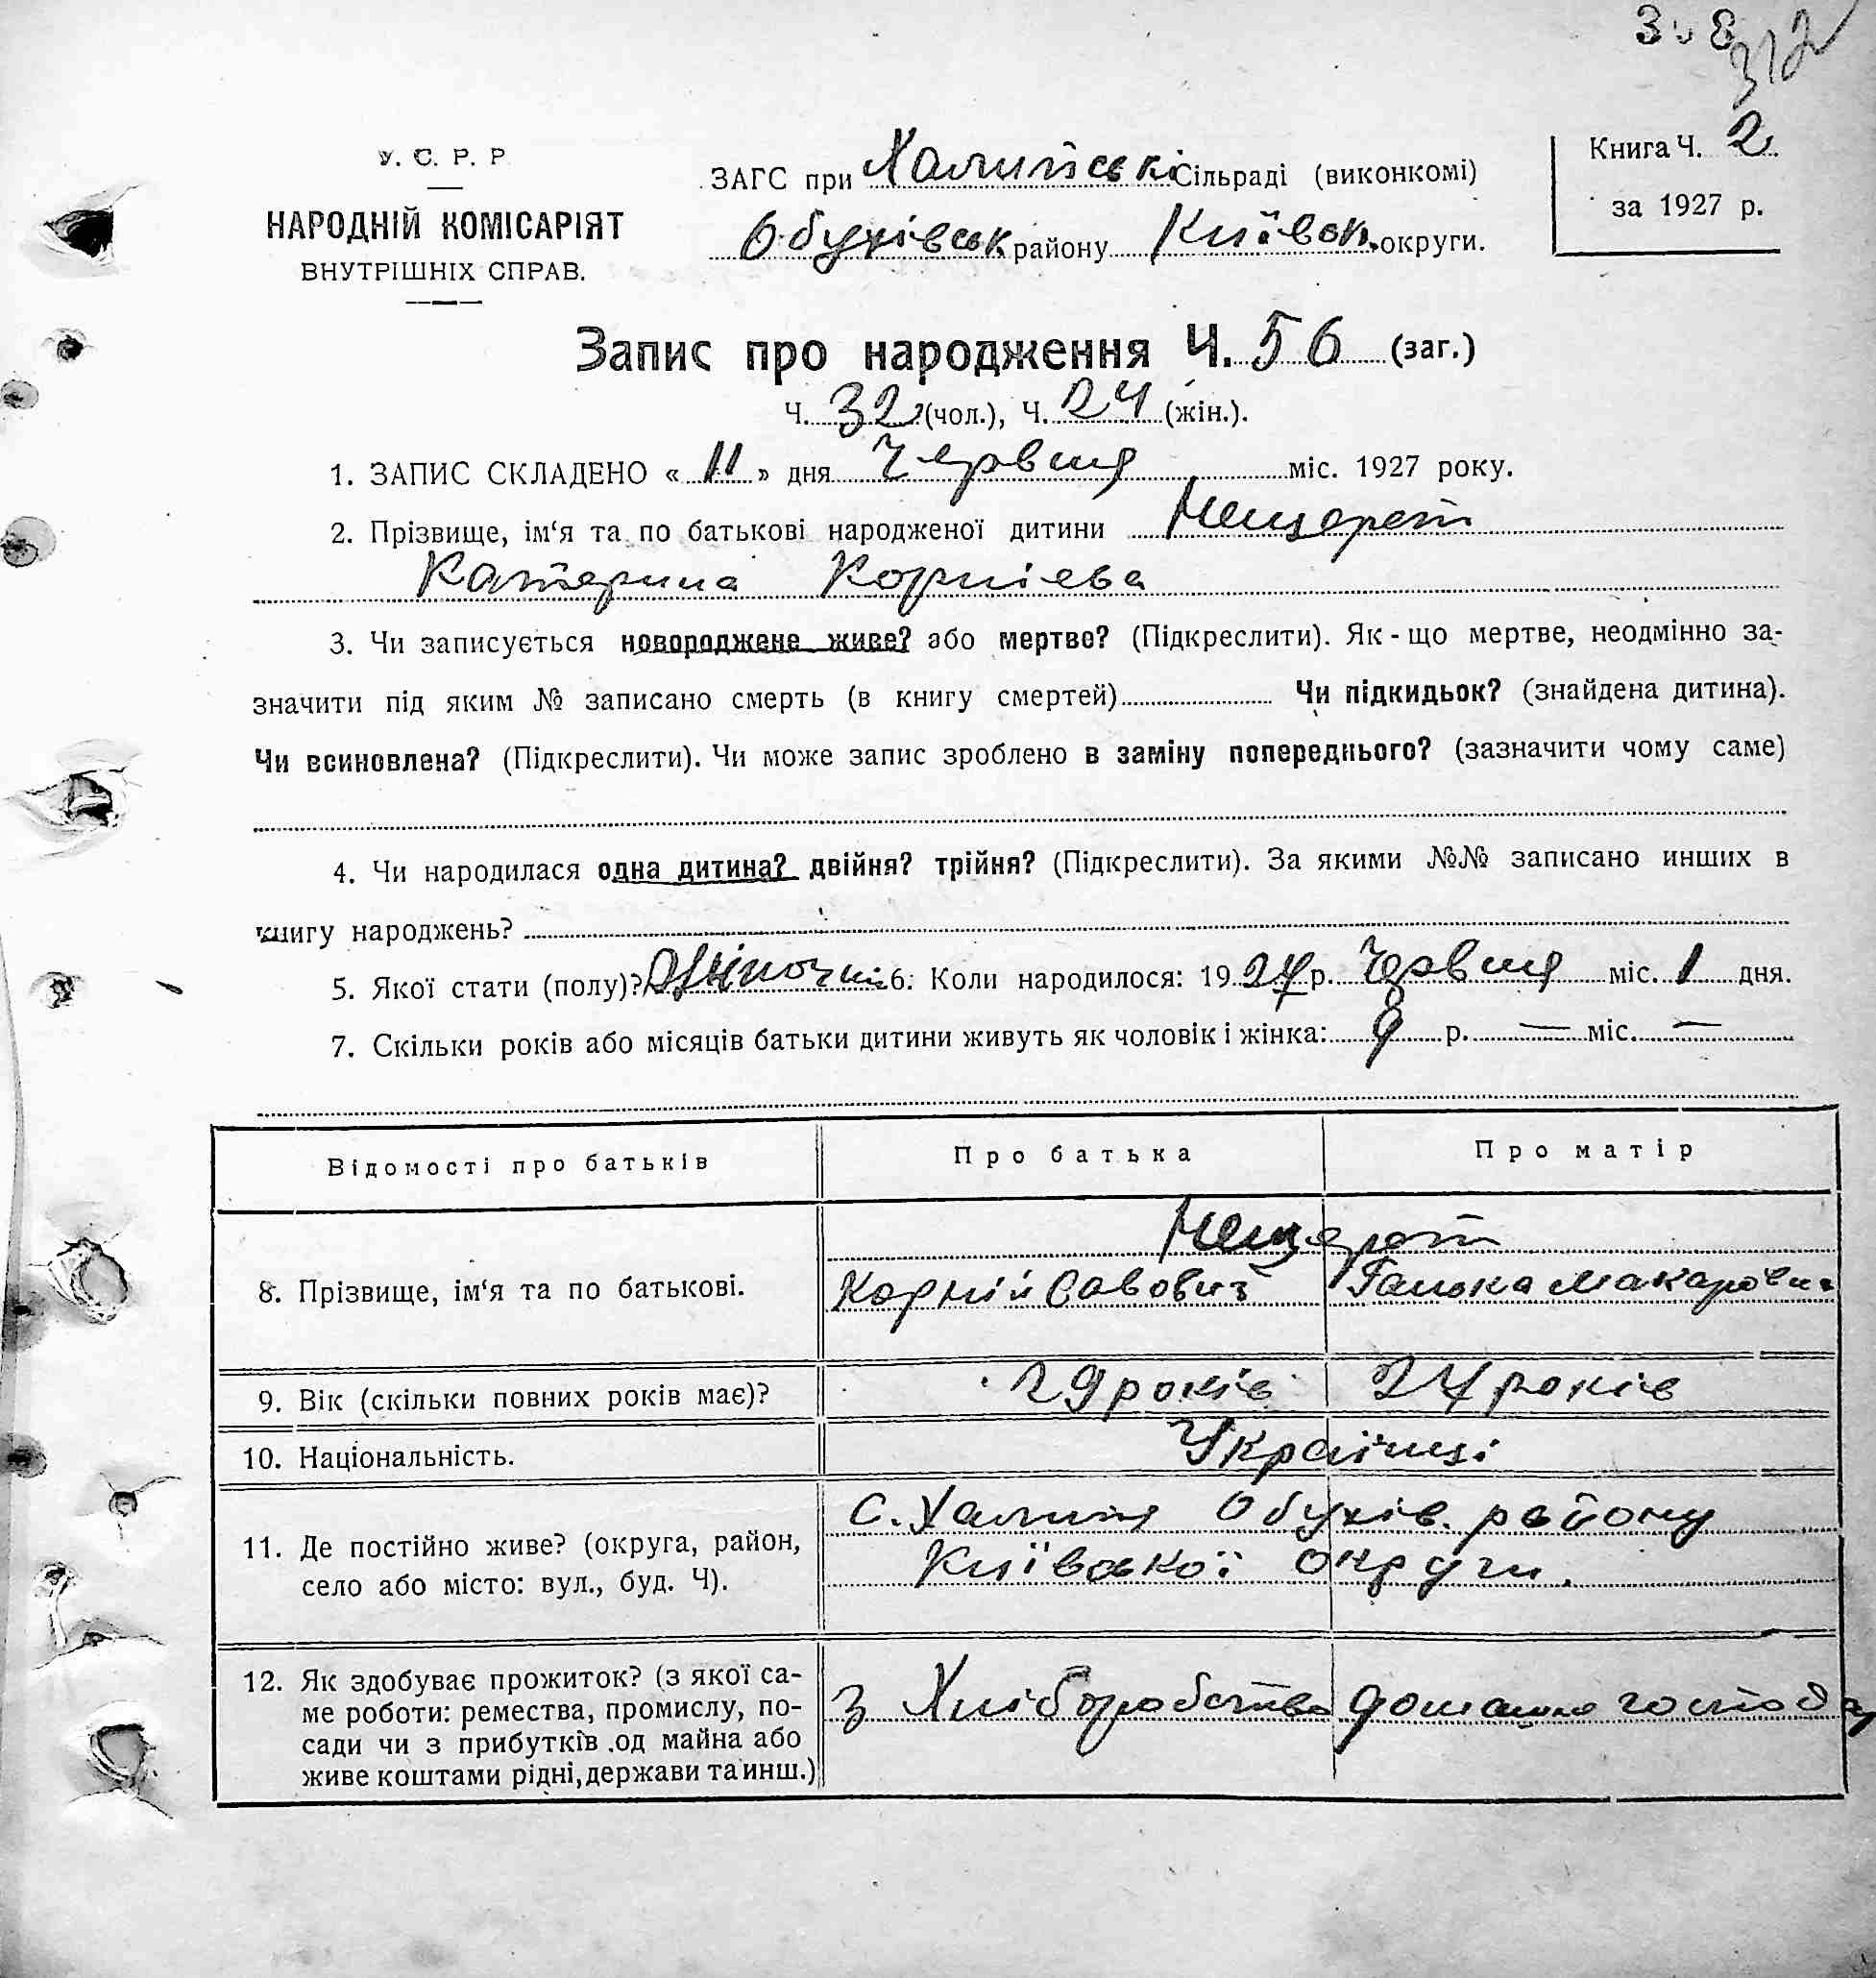 3 8
312
У. С. Р. Р
НАРОДНІЙ КОМІСАРІЯТ
ВНУТРІШНІХ СПРАВ.
ЗАГС при Халипські Сільраді (виконкомі)
Обухівськ району Київськ. округи.
Книга Ч. 2
за 1927 р.
Запис про народження Ч. 56 (заг.)
Ч. 32 (чол.), Ч. 24 (жін.).
1. ЗАПИС СКЛАДЕНО « 11 » дня Червня міс. 1927 року.
2. Прізвище, ім‘я та по батькові народженої дитини Мещерет
Катерина Корніева
3. Чи записується новороджене живе? або мертве? (Підкреслити). Як-що мертве, неодмінно за-
значити під яким № записано смерть (в книгу смертей) Чи підкидьок? (знайдена дитина).
Чи всиновлена? (Підкреслити). Чи може запис зроблено в заміну попереднього? (зазначити чому саме)
4. Чи народилася одна дитина? двійня? трійня? (Підкреслити). За якими №№ записано инших в
книгу народжень?
5. Якої стати (полу)? Жіночиі 6. Коли народилося: 1927 р. Червня міс. 1 дня.
7. Скільки років або місяців батьки дитини живуть як чоловік і жінка: 9 р. — міс. —
Відомості про батьків Про батька Про матір
Мещерет
8. Прізвище, ім‘я та по батькові. Корній Савович Ганька Макаровна
9. Вік (скільки повних років має)? 29 років 27 років
10. Національність. Українці
11. Де постійно живе? (округа, район,
село або місто: вул., буд. Ч).
С. Халипя Обухів. району
Київської округи.
12. Як здобуває прожиток? (з якої са-
ме роботи: ремества, промислу, по-
сади чи з прибутків од майна або
живе коштами рідні, держави та инш.)
З Хліборобства домашнє господ